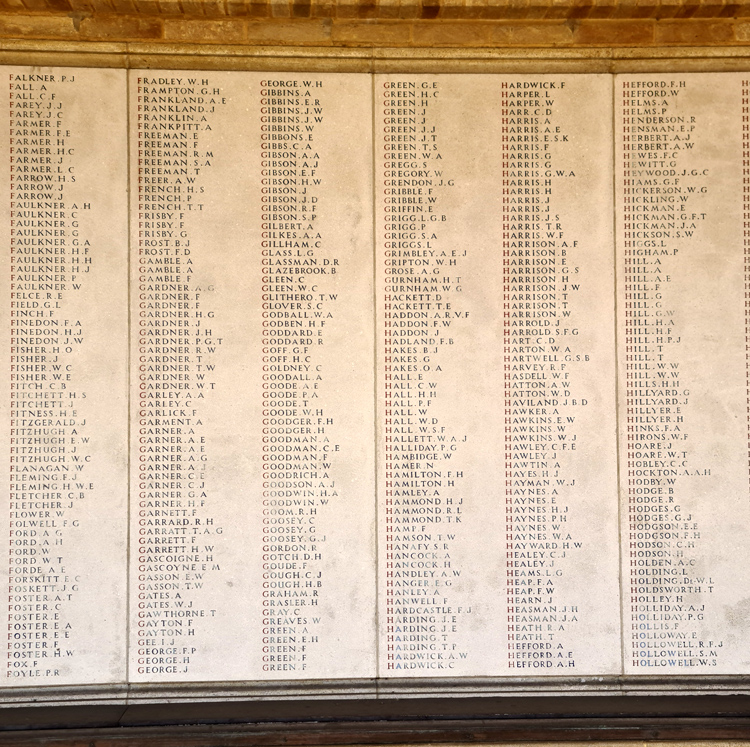 FALKNER.P.J
FALL.A
FALL.C.F
FAREY.J.J
FAREY.J.C
FARMER.F
FARMER.F.E
FARMER.H
FARMER.H.C
FARMER.J
FARMER.L.C
FARROW.H.S
FARROW.J
FARROW.J
FAULKNER.A.H
FAULKNER.C
FAULKNER.G
FAULKNER.G
FAULKNER.G.A
FAULKNER.H.F
FAULKNER.H.H
FAULKNER.H.J
FAULKNER.P
FAULKNER.W
FELCE.R.E
FIELD.G.L
FINCH.F
FINEDON.F.A
FINEDON.H.J
FINEDON.J.W
FISHER.H.O
FISHER.J
FISHER.W.C
FISHER.W.E
FITCH.C.B
FITCHETT.H.S
FITCHETT.J
FITNESS.H.E
FITZGERALD.J
FITZHUGH.A
FITZHUGH.E.W
FITZHUGH.J
FITZHUGH.W.C
FLANAGAN.W
FLEMING.F.J
FLEMING.H.W.E
FLETCHER.C.B
FLETCHER.J
FLOWER.W
FOLWELL.F.G
FORD.A.G
FORD.A.H
FORD.W
FORD.W.T
FORDE.A.E
FORSKITT.E.C
FOSKETT.J.G
FOSTER.A.T
FOSTER.C
FOSTER.E
FOSTER.E.A
FOSTER.E.E
FOSTER.F
FOSTER.H.W
FOX.F
FOYLE.P.R
FRADLEY.W.H
FRAMPTON.G.H
FRANKLAND.A.E
FRANKLAND.J
FRANKLIN.A
FRANKPITT.A
FREEMAN.E
FREEMAN.F
FREEMAN.R.M
FREEMAN.S.A
FREEMAN.T
FREER.A.W
FRENCH.H.S
FRENCH.P
FRENCH.T.T
FRISBY.F
FRISBY.F
FRISBY.G
FROST.B.J
FROST.F.D
GAMBLE.A
GAMBLE.A
GAMBLE.F
GARDNER.A.G
GARDNER.F
GARDNER.F
GARDNER.H.G
GARDNER.J
GARDNER.J.H
GARDNER.P.G.T
GARDNER.R.W
GARDNER.T
GARDNER.T.W
GARDNER.W
GARDNER.W.T
GARLEY.A.A
GARLEY.C
GARLICK.F
GARMENT.A
GARNER.A
GARNER.A.E
GARNER.A.E
GARNER.A.G
GARNER.A.J
GARNER.C.E
GARNER.C.J
GARNER.G.A
GARNER.H.F
GARNETT.F
GARRARD.R.H
GARRATT.T.A.G
GARRETT.F
GARRETT.H.W
GASCOIGNE.H
GASCOYNE.E.M
GASSON.E.W
GASSON.T.W
GATES.A
GATES.W.J
GAWTHORNE.T
GAYTON.F
GAYTON.H
GEE.I.J
GEORGE.F.P
GEORGE.H
GEORGE.J
GEORGE.W.H
GIBBINS.A
GIBBINS.E.R
GIBBINS.J.W
GIBBINS.J.W
GIBBINS.W
GIBBONS.E
GIBBS.C.A
GIBSON.A.A
GIBSON.A.J
GIBSON.E.F
GIBSON.H.W
GIBSON.J
GIBSON.J.D
GIBSON.R.F
GIBSON.S.P
GILBERT.A
GILKES.A.A
GILLHAM.C
GLASS.L.G
GLASSMAN.D.R
GLAZEBROOK.B
GLEEN.C
GLEEN.W.C
GLITHERO.T.W
GLOVER.S.C
GODBALL.W.A
GODBEN.H.F
GODDARD.E
GODDARD.R
GOFF.G.F
GOFF.H.C
GOLDNEY.C
GOODALL.A
GOODE.A.E
GOODE.P.A
GOODE.T
GOODE.W.H
GOODGER.F.H
GOODGER.H
GOODMAN.A
GOODMAN.C.E
GOODMAN.F
GOODMAN.W
GOODRICH.A
GOODSON.A.J
GOODWIN.H.A
GOODWIN.W
GOOM.R.H
GOOSEY.C
GOOSEY.G
GOOSEY.G.J
GORDON.R
GOTCH.D.H
GOUDE.F
GOUGH.C.J
GOUGH.H.B
GRAHAM.R
GRASLER.H
GRAY.C
GREAVES.W
GREEN.A
GREEN.E.H
GREEN.F
GREEN.F
GREEN.F
GREEN.G.E
GREEN.H.C
GREEN.H
GREEN.J
GREEN.J
GREEN.J.J
GREEN.J.T
GREEN.T.S
GREEN.W.A
GREGG.S
GREGORY.W
GRENDON.J.G
GRIBBLE.F
GRIBBLE.W
GRIFFIN.E
GRIGG.L.G.B
GRIGG.P
GRIGGS.A
GRIGGS.L
GRIMBLEY.A.E.J
GRIPTON.W.H
GROSE.A.G
GURNHAM.H.T
GURNHAM.W.G
HACKETT.D
HACKETT.T.E
HADDON.A.R.V.F
HADDON.F.W
HADDON.J
HADLAND.F.B
HAKES.B.J
HAKES.G
HAKES.O.A
HALL.E
HALL.C.W
HALL.H.H
HALL.P.F
HALL.W
HALL.W.D
HALL.W.S.F
HALLETT.W.A.J
HALLIDAY.P.G
HAMBIDGE.W
HAMER.N
HAMILTON.F.H
HAMILTON.H
HAMLEY.A
HAMMOND.H.J
HAMMOND.R.L
HAMMOND.T.K
HAMP.F
HAMSON.T.W
HANAFY.S.R
HANCOCK.A
HANCOCK.H
HANDLEY.A.W
HANGER.E.G
HANLEY.A
HANWELL.F
HARDCASTLE.F.J
HARDING.J.E
HARDING.J.E
HARDING.T
HARDING.T.P
HARDWICK.A.W
HARDWICK.C
HARDWICK.F
HARPER.L
HARPER.W
HARR.C.D
HARRIS.A
HARRIS.A.E
HARRIS.E.S.K
HARRIS.F
HARRIS.G
HARRIS.G
HARRIS.G.W.A
HARRIS.H
HARRIS.H
HARRIS.J
HARRIS.J
HARRIS.J.S
HARRIS.T.R
HARRIS.W.F
HARRISON.A.F
HARRISON.B
HARRISON.E
HARRISON.G.S
HARRISON.H
HARRISON.J.W
HARRISON.T
HARRISON.T
HARRISON.W
HARROLD.J
HARROLD.S.F.G
HART.C.D
HARTON.W.A
HARTWELL.G.S.B
HARVEY.R.P
HASDELL.W.F
HATTON.A.W
HATTON.W.D
HAVILAND.J.B.D
HAWKER.A
HAWKINS.E.W
HAWKINS.W
HAWKINS.W.J
HAWLEY.C.F.E
HAWLEY.J
HAWTIN.A
HAYES.H.J
HAYMAN.W.J
HAYNES.A
HAYNES.E
HAYNES.H.J
HAYNES.P.H
HAYNES.W
HAYNES.W.A
HAYWARD.H.W
HEALEY.C.J
HEALEY.J
HEAMS.L.G
HEAP.F.A
HEAP.F.W
HEARN.J
HEASMAN.J.H
HEASMAN.J.A
HEATH.R.A
HEATH.T
HEFFORD.A
HEFFORD.A.E
HEFFORD.A.H
HEFFORD.F.H
HEFFORD.W
HELMS.A
HELMS.P
HENDERSON.R
HENSMAN.E.P
HERBERT.A.J
HERBERT.A.W
HEWES.F.C
HEWITT.G
HEYWOOD.J.G.C
HIAMS.G.F
HICKERSON.W.G
HICKLING.W
HICKMAN.E
HICKMAN.G.F.T
HICKMAN.J.A
HICKSON.S.W
HIGGS.L
HIGHAM.P
HILL.A
HILL.A
HILL.A.E
HILL.F
HILL.G
HILL.G
HILL.G.W
HILL.H.A
HILL.H.F
HILL.H.P.J
HILL.T
HILL.T
HILL.W.W
HILL.W.W
HILLS.H.H
HILLYARD.G
HILLYARD.J
HILLYER.E
HILLYER.H
HINKS.F.A
HIRONS.W.F
HOARE.J
HOARE.W.T
HOBLEY.C.C
HOCKTON.A.A.H
HODBY.W
HODGE.B
HODGE.R
HODGES.G
HODGES.G.J
HODGSON.E.E
HODGSON.F.H
HODSON.C.H
HODSON.H
HOLDEN.A.C
HOLDING.L
HOLDING.D.W.L
HOLDSWORTH.T
HOLLEY.H
HOLLIDAY.A.J
HOLLIDAY.P.G
HOLLIS.F
HOLLOWAY.E
HOLLOWELL.R.F.J
HOLLOWELL.S.M
HOLLOWELL.W.S